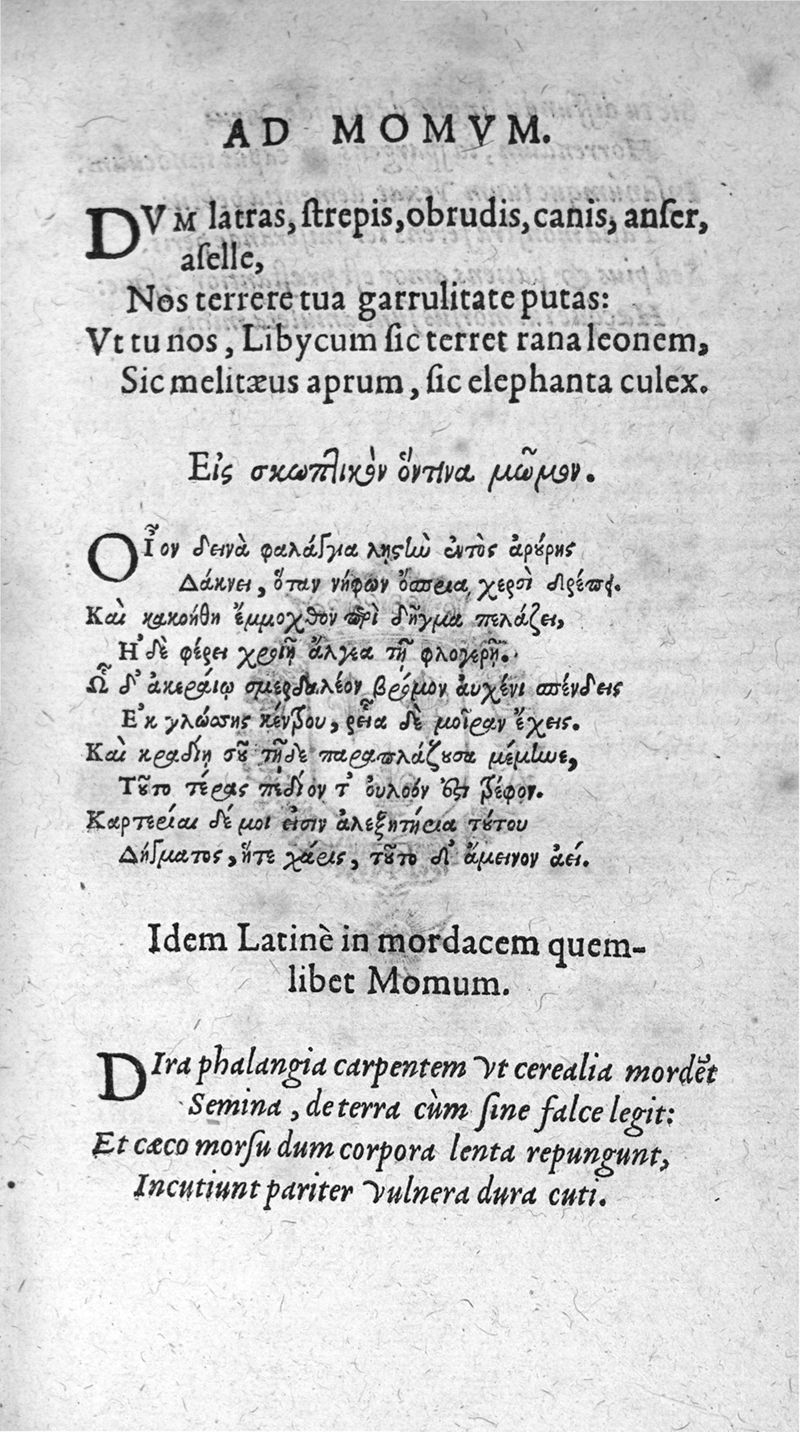 AD MOMVM.
DVM latras, ſtrepis, obrudis, canis, anſer,
aſelle,
Nos terrere tua garrulitate putas:
Vt tu nos, Libycum ſic terret rana leonem,
Sic melitæus aprum, ſic elephanta culex.
Εἰς σκωπλικὸν ὅντινα μῶμον.
Οἷον δεινὰ φαλάγγια ληστὼ ἐντὸς ἀρούρης
Δάκνει, ὅταν νήφων ὄσπρια χερσὶ
Καὶ κακοήθη ἔμμοχθον περὶ δῆγμα πελάζει,
Ἠδὲ φέρει χροιῇ ἄλγεα τῇ φλογερῇ.
Ὦ δ' ἀκεραίῳ σμερδαλέον βρόμον αὐχένι σπένδεις
Ἐκ γλώσσης κέντρου, ῥεῖα δὲ μοῖραν ἔχεις.
Καὶ κραδίη σοῦ τῇδε παραπλάζουσα
Τοῦτο τέρας πεδίον τ' οὐλοὸν ἔτρεφον.
Καρτερίαι δέ μοι εἰσιν ἀλεξητήρια τούτου
Δήγματος, ἥτε χάρις, τοῦτο δ' ἄμεινον ἀεί.
Idem Latinè in mordacem quem-
libet Momum.
DIra phalangia carpentem vt cerealia mordēt
Semina, de terra cùm ſine falce legit:
Et cæco morſu dum corpora lenta repungunt,
Incutiunt pariter vulnera dura cuti.